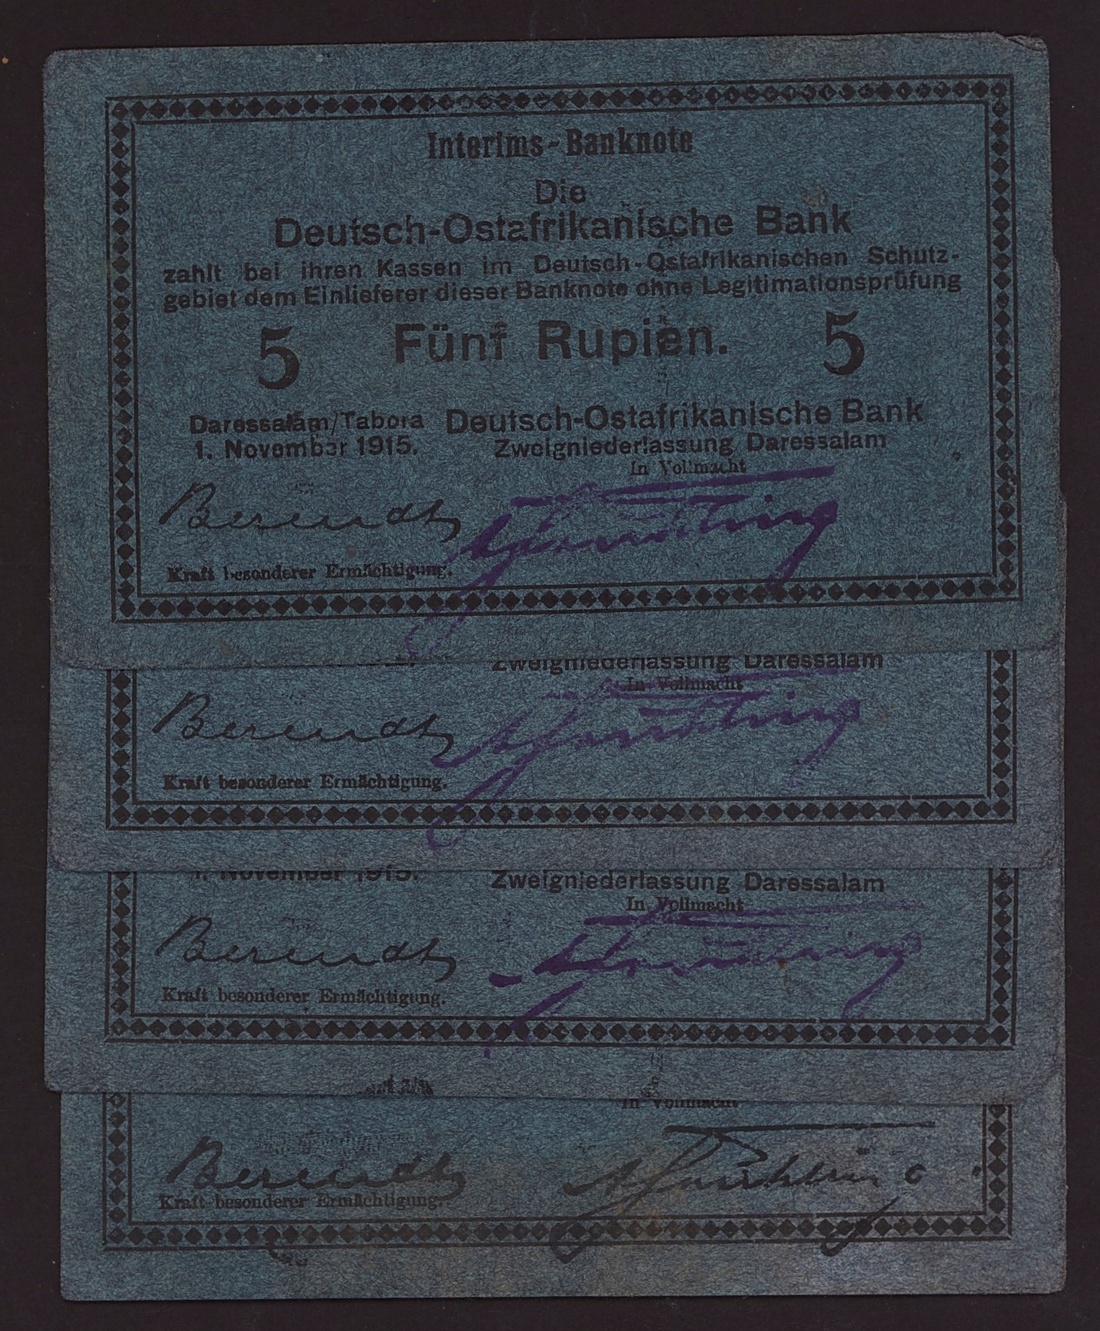 Interims-Banknote
Die
Deutsch-Ostafrikanische Bank
zahlt bei ihren Kassen im Deutsch-Ostafrikanischen Schutz-
gebiet dem Einlieferer dieser Banknote ohne Legitimationsprüfung
5 Fünf Rupien. 5
Daressalam/Tabora Deutsch-Ostafrikanische Bank
1. November 1915. Zweigniederlassung Daressalam
In Vollmacht
Berendt
Kraft besonderer Ermächtigung.
Zweigniederlassung Daressalam
In Vollmacht
Berendt
Kraft besonderer Ermächtigung.
1. November 1915. Zweigniederlassung Daressalam
In Vollmacht
Berendt
Kraft besonderer Ermächtigung.
In Vollmacht
Berendt
Kraft besonderer Ermächtigung.